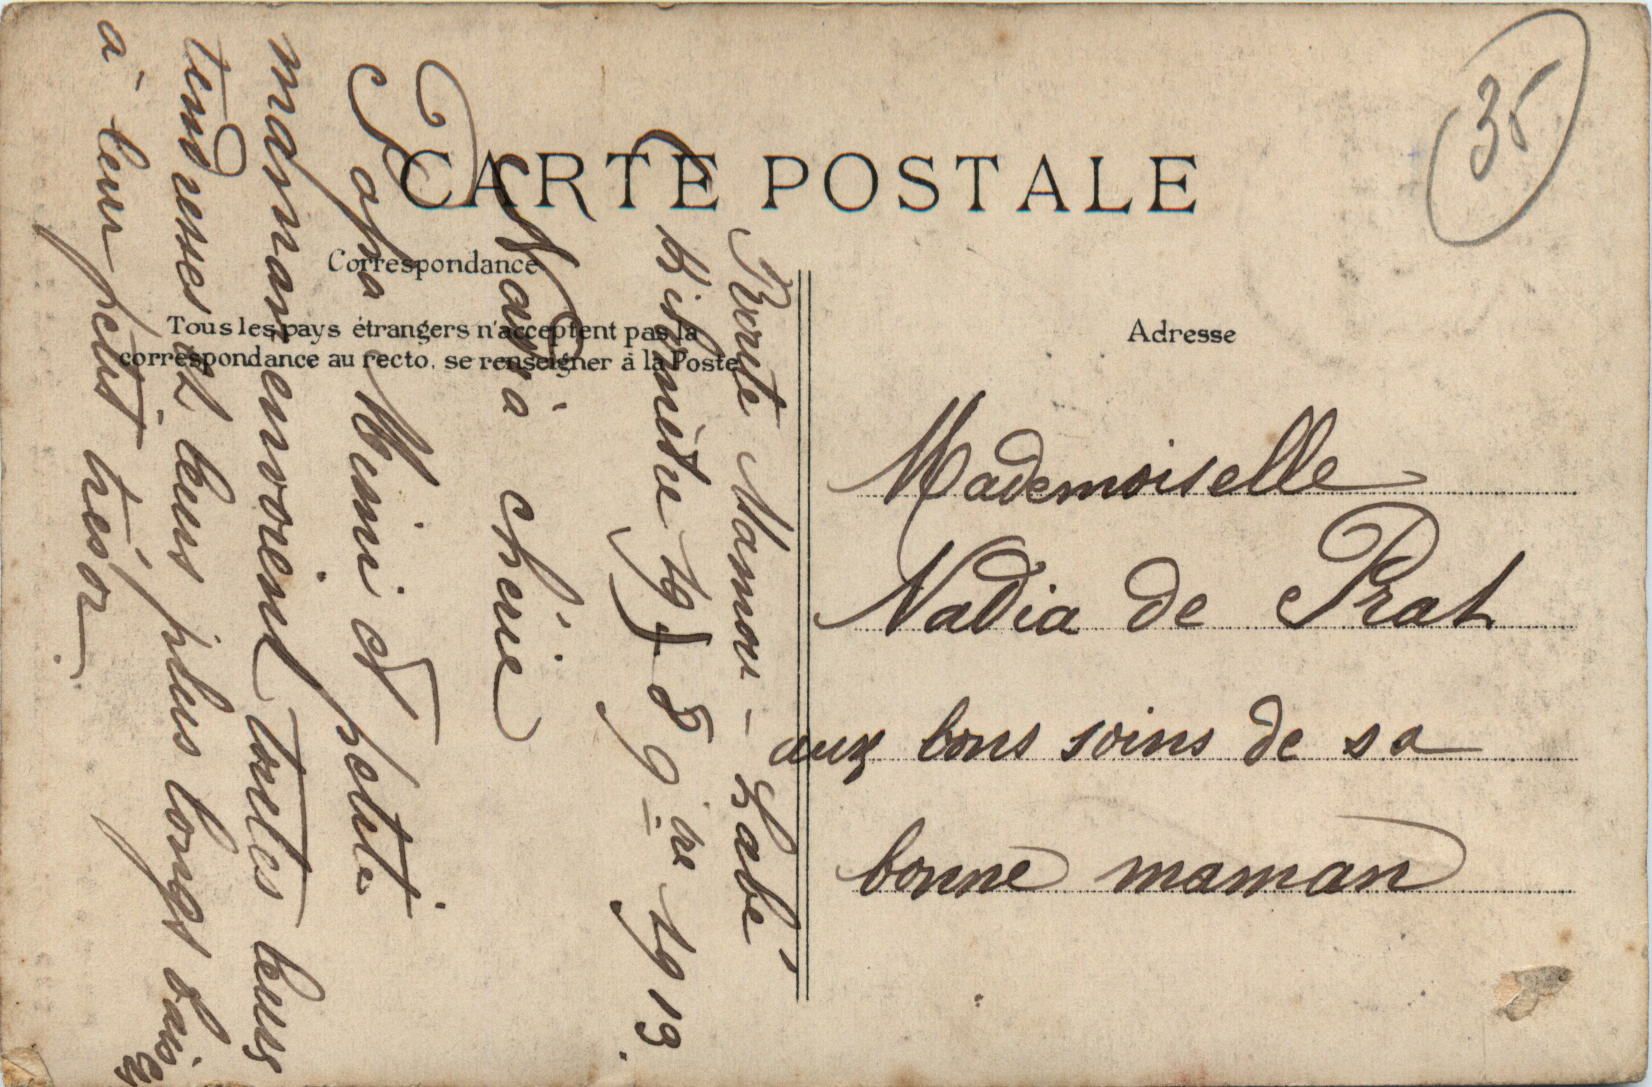 35
CARTE POSTALE
Correspondance
Tous les pays étrangers n'acceptent pas la
correspondance au recto, se renseigner à la Poste
Adresse
Mademoiselle
Nadia de Prat
aux bons soins de sa
bonne maman
Route Mamou - Labé
Kilomètre 19 8 9bre 1913.
Nadia chérie
Papa Mimi et petite
maman envoient toutes leurs
tendresses et leurs plus longs baisers
à leur petit trésor.